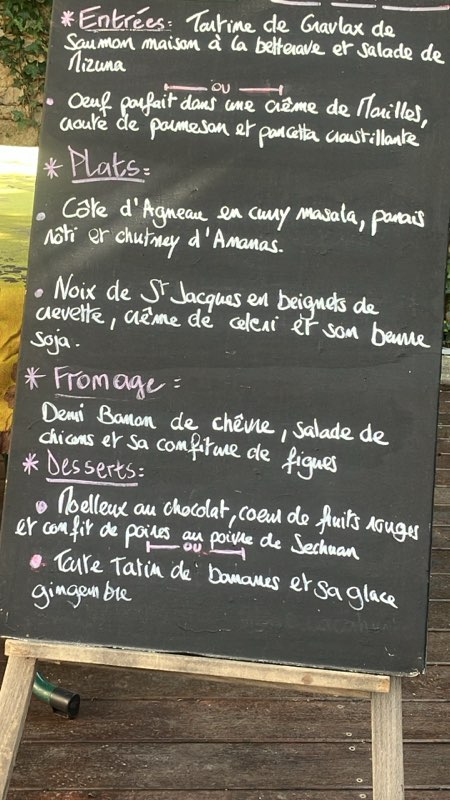 * Entrées: Tartine de Gravlax de
Saumon maison à la betterave et salade de
Mizuna
ou
• Oeuf parfait dans une crème de Maroilles,
croute de parmesan et pancetta croustillante
* Plats:
• Côte d'Agneau en curry masala, panais
rôti et chutney d'Ananas.
• Noix de St Jacques en beignets de
crevette, crème de celeri et son beurre
soja.
* Fromage:
Demi Banon de chêvre, salade de
chicons et sa confiture de figues
* Desserts:
• Moelleux au chocolat, coeur de fruits rouges
et confit de poires au poivre de Sechuan
ou
• Tarte Tatin de bananes et sa glace
gingembre